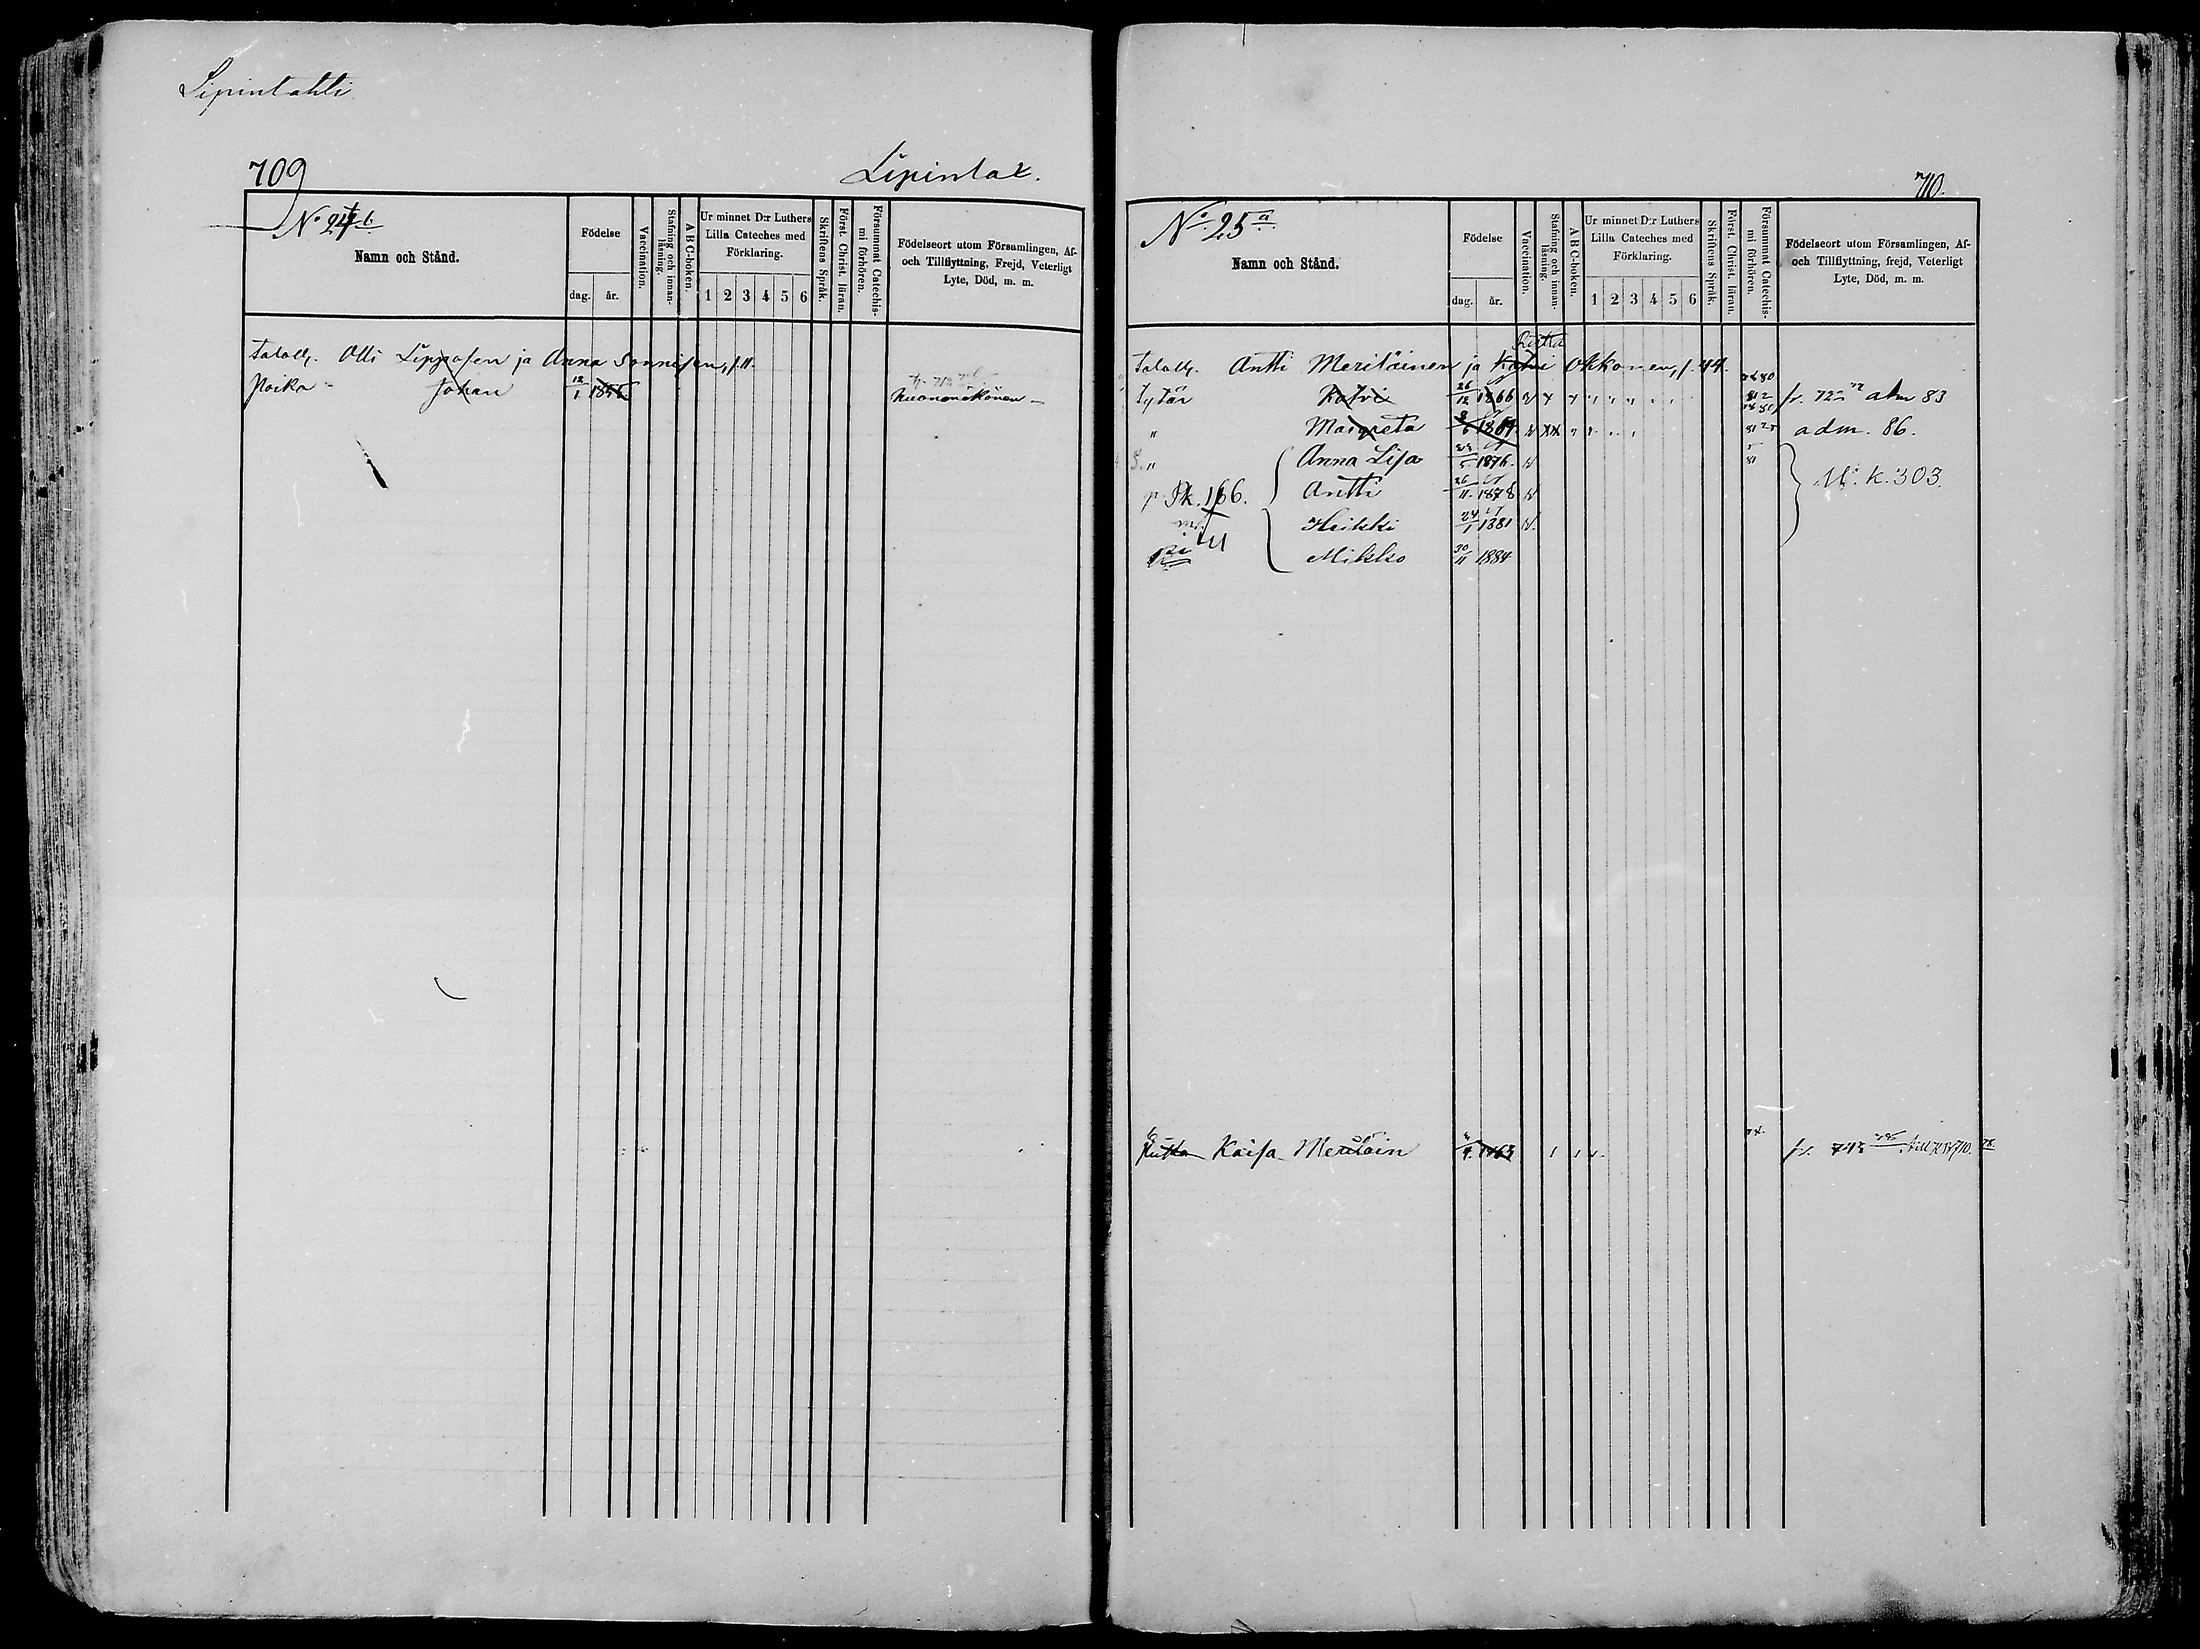 Lipintahti
709
Lipintax.
No 24 b
Namn och Stånd.
Födelse
dag. år.
Vaccination.
Stafning och innanläsning.
A B C-boken.
Ur minnet D:r Luthers Lilla Cateches med Förklaring.
1 2 3 4 5 6
Skriftens Språk.
Först. Christ. läran.
Försummat Catechismi förhören.
Födelseort utom Församlingen, Af- och Tillflyttning, Frejd, Veterligt Lyte, Död, m. m.
Talall. Olli Lipposen ja Anna
Poika Johan 12/1
710.
No 25 a
Namn och Stånd.
Födelse
dag. år.
Vaccination.
Stafning och innanläsning.
A B C-boken.
Ur minnet D:r Luthers Lilla Cateches med Förklaring.
1 2 3 4 5 6
Skriftens Språk.
Först. Christ. läran.
Försummat Catechismi förhören.
Födelseort utom Församlingen, Af- och Tillflyttning, frejd, Veterligt Lyte, Död, m. m.
Riitta
Talall. Antti Meriläinen ja Katri Okkonen, s. 44.
Tytär Katri 26/12 1866 83
" Margreta 1869 adm. 86.
" Anna Lisa 1876
p. Pk. 166. Antti 26/11 1878
M. k. 303.
Heikki 24/1 1881
Mikko 30/11 1884
Kaisa Meriläin 1863